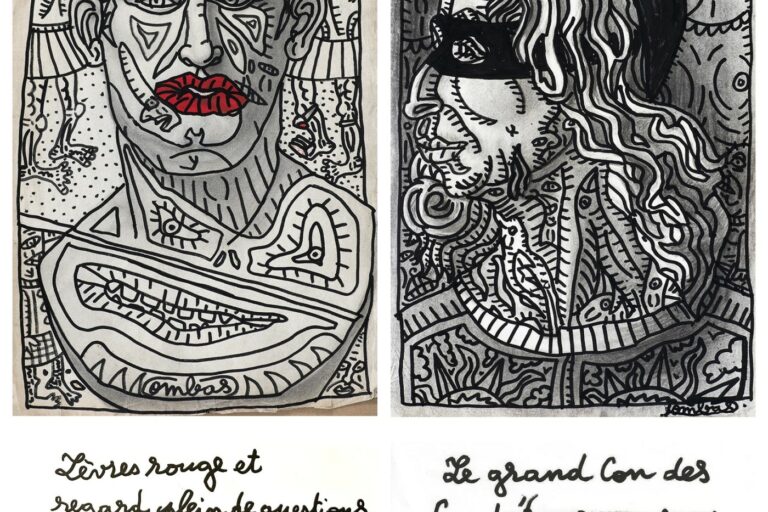 ombas
Combas.
Lèvres rouge et
regard plein de questions
Le grand Con des